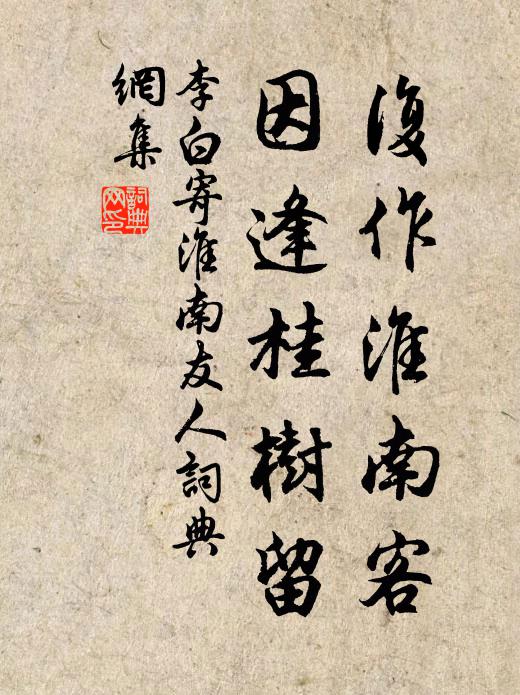 復作淮南客
因逢桂樹留
李白寄淮南友人詞典
網集
詞典网印